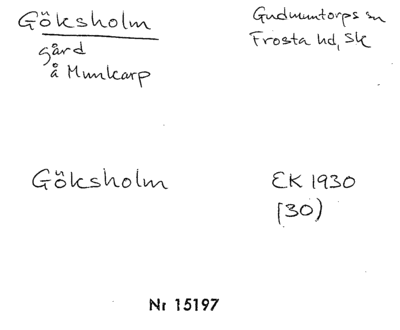 Göksholm
gård
å Munkarp
Gudmuntorps sn
Frosta hd, Sk
Göksholm
EK 1930
(30)
Nr 15197